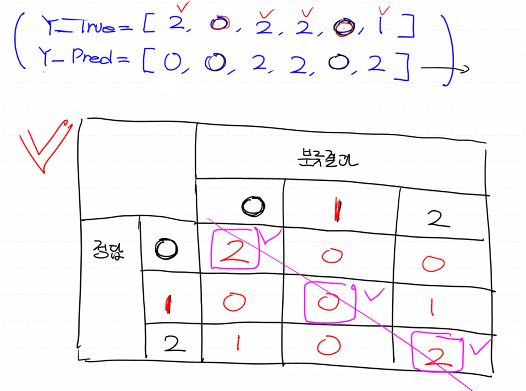 Y_True = [ 2, 0, 2, 2, 0, 1 ]
Y_Pred = [ 0, 0, 2, 2, 0, 2 ]
분류결과
0 1 2
정답 0 2 0 0
1 0 0 1
2 1 0 2